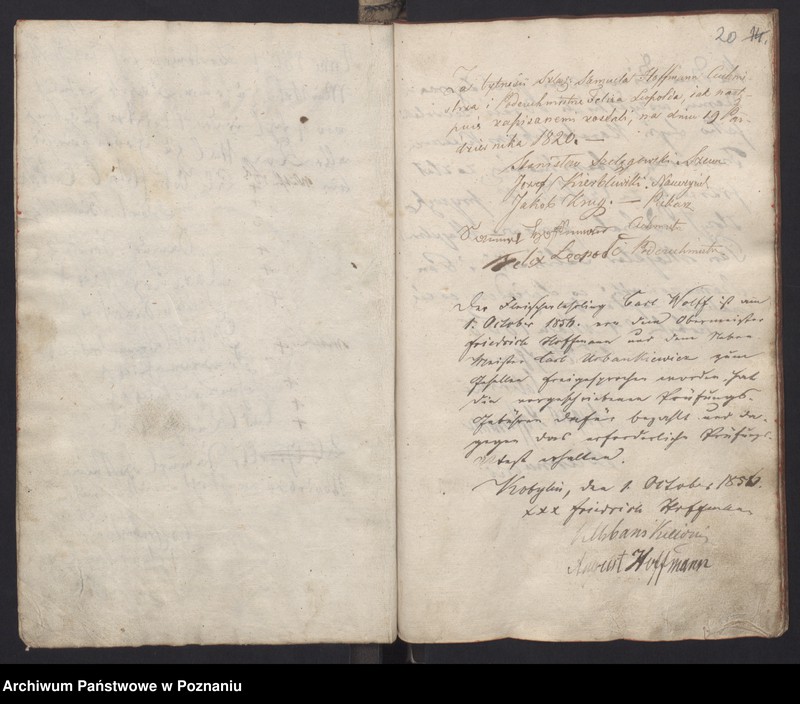 20
Za bytności Samuela Hoffmanna Cechmi-
strza i Podcechmistrza Felixa Leopolda, jak nastę-
puie zapisanemi zostali, na dniu 19 Paź-
dziernika 1820. —
Stanisław
Jozef
Jakob Krug. —
Samuel Hoffmann
Felix Leopold Podcechmistrz
Der Fleischerlehrling Carl Wolff ist am
1. October 1856. von dem Obermeister
Friedrich Hoffmann und dem Neben
Meister Carl Urbankiewicz zum
Gesellen freigesprochen worden, hat
die vorgeschriebenen Prüfungs-
Gebühren dafür bezahlt und da-
gegen das erforderliche Prüfungs-
Attest erhalten.
Kobylin, den 1. October 1856.
xxx Friedrich Hoffmann
C Urbankiewicz
August Hoffmann
Archiwum Państwowe w Poznaniu